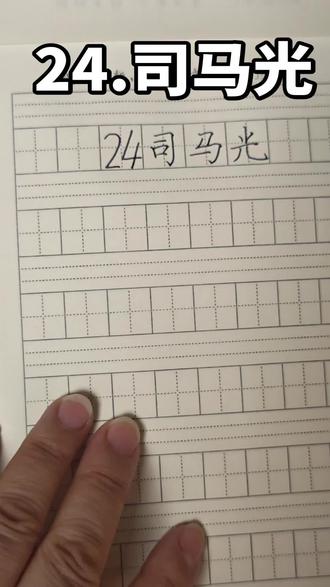 24.司马光
24司马光